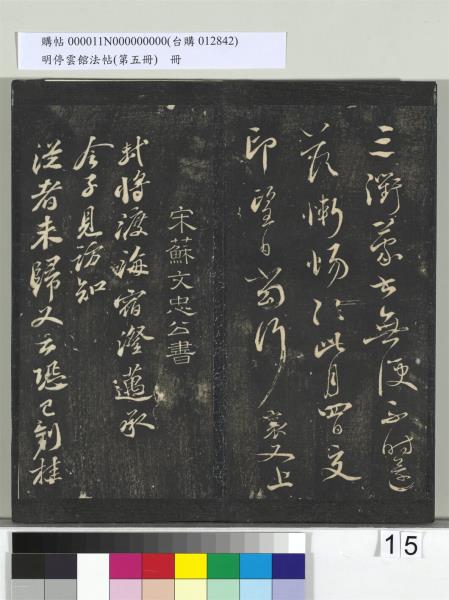 購帖 000011N000000000(台購 012842)
明停雲館法帖(第五冊)　冊
三衢蒙書無便不時還
答慚惕於此月四日交
印望日當行 襄又上
宋蘇文忠公書
軾將渡海宿澄邁承
令子見訪知
從者未歸又云恐已到桂
15